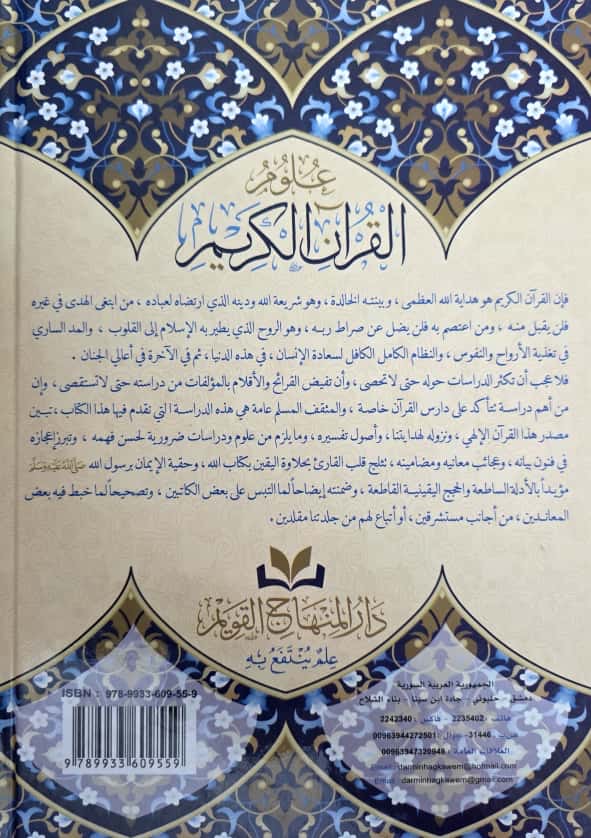 علوم
القرآن الكريم
فإن القرآن الكريم هو هداية الله العظمى ، وبينته الخالدة ، وهو شريعة الله ودينه الذي ارتضاه لعباده ، من ابتغى الهدى في غيره
فلن يقبل منه ، ومن اعتصم به فلن يضل عن صراط ربه ، وهو الروح الذي يطير به الإسلام إلى القلوب ، والمد الساري
في تغذية الأرواح والنفوس ، والنظام الكامل الكافل لسعادة الإنسان ، في هذه الدنيا ، ثم في الآخرة في أعالي الجنان .
فلا عجب أن تكثر الدراسات حوله حتى لا تحصى ، وأن تفيض القرائح والأقلام بالمؤلفات من دراسته حتى لا تستقصى ، وإن
من أهم دراسة تتأكد على دارس القرآن خاصة ، والمثقف المسلم عامة هي هذه الدراسة التي نقدم فيها هذا الكتاب ، تبين
مصدر هذا القرآن الإلهي ، ونزوله لهدايتنا ، وأصول تفسيره ، وما يلزم من علوم ودراسات ضرورية لحسن فهمه ، وتبرز إعجازه
في فنون بيانه ، وعجائب معانيه ومضامينه ، تثلج قلب القارئ بحلاوة اليقين بكتاب الله ، وحقية الإيمان برسول الله ﷺ
مؤيداً بالأدلة الساطعة والحجج اليقينية القاطعة ، وضمنته إيضاحاً لما التبس على بعض الكاتبين ، وتصحيحاً لما خبط فيه بعض
المعاندين ، من أجانب مستشرقين ، أو أتباع لهم من جلدتنا مقلدين .
دار المنهاج القويم
علم ينتفع به
ISBN : 978-9933-609-55-9
9 789933 609559
الجمهورية العربية السورية
دمشق - حلبوني - جادة ابن سينا - بناء الشلاح
هاتف : 2235402 - فاكس : 2242340
ص.ب : 31446 - جوال : 00963944272501
العلاقات العامة : 00963947320948
Email : darminhagkawem@hotmail.com
Email : darminhagkawem@gmail.com